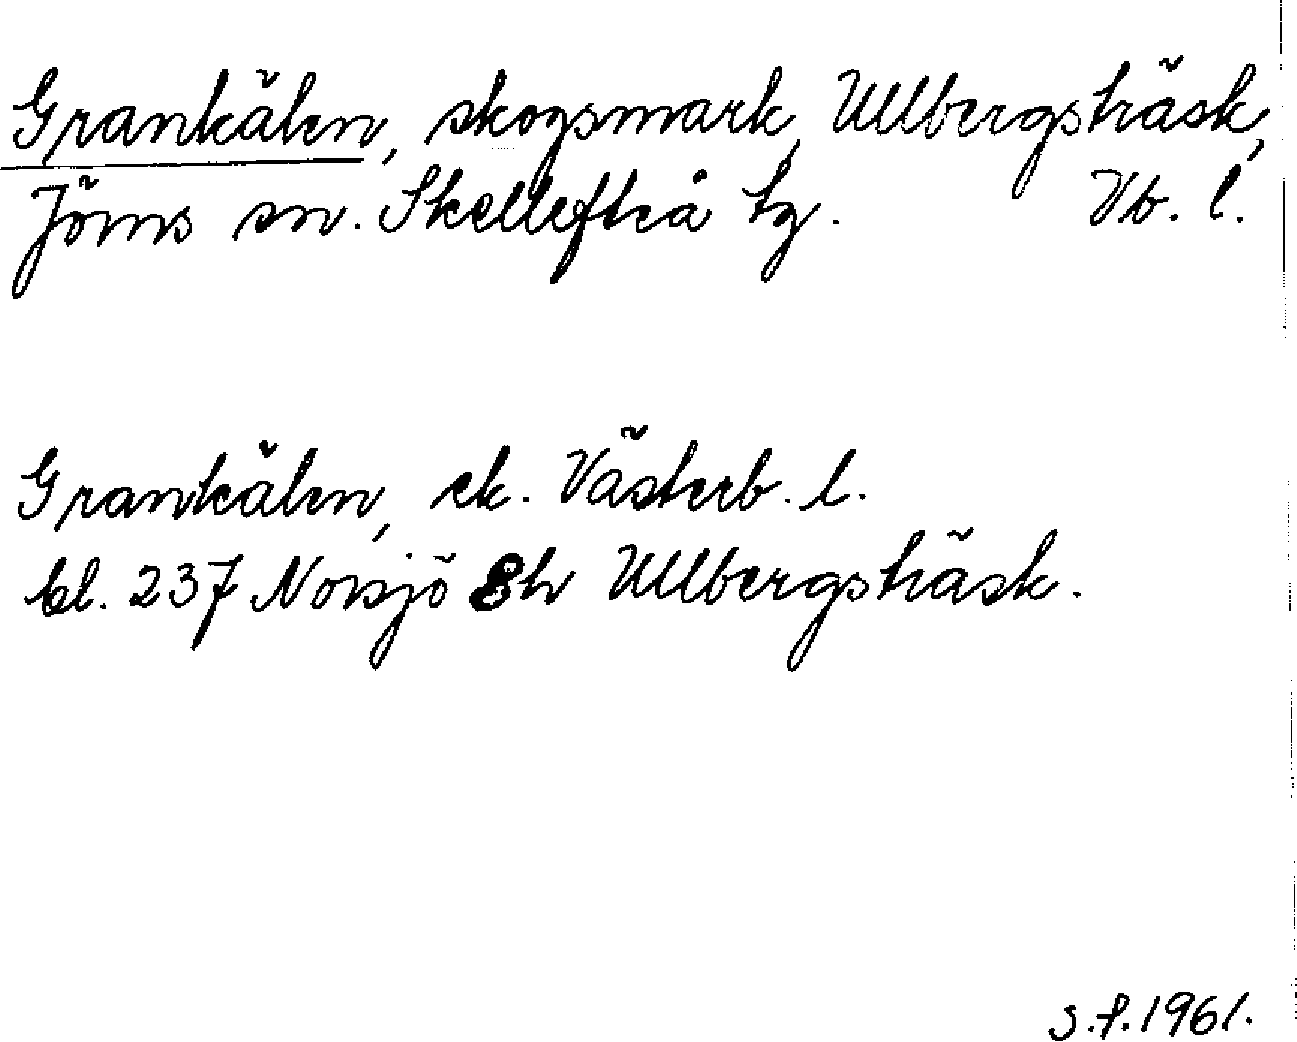 Grankälen, skogsmark, Ullbergsträsk,
Jörns sn. Skellefteå tg. Vb. l.
Grankälen, ek. Västerb. l.
bl. 237 Norsjö 8h Ullbergsträsk.
s.f. 1961.